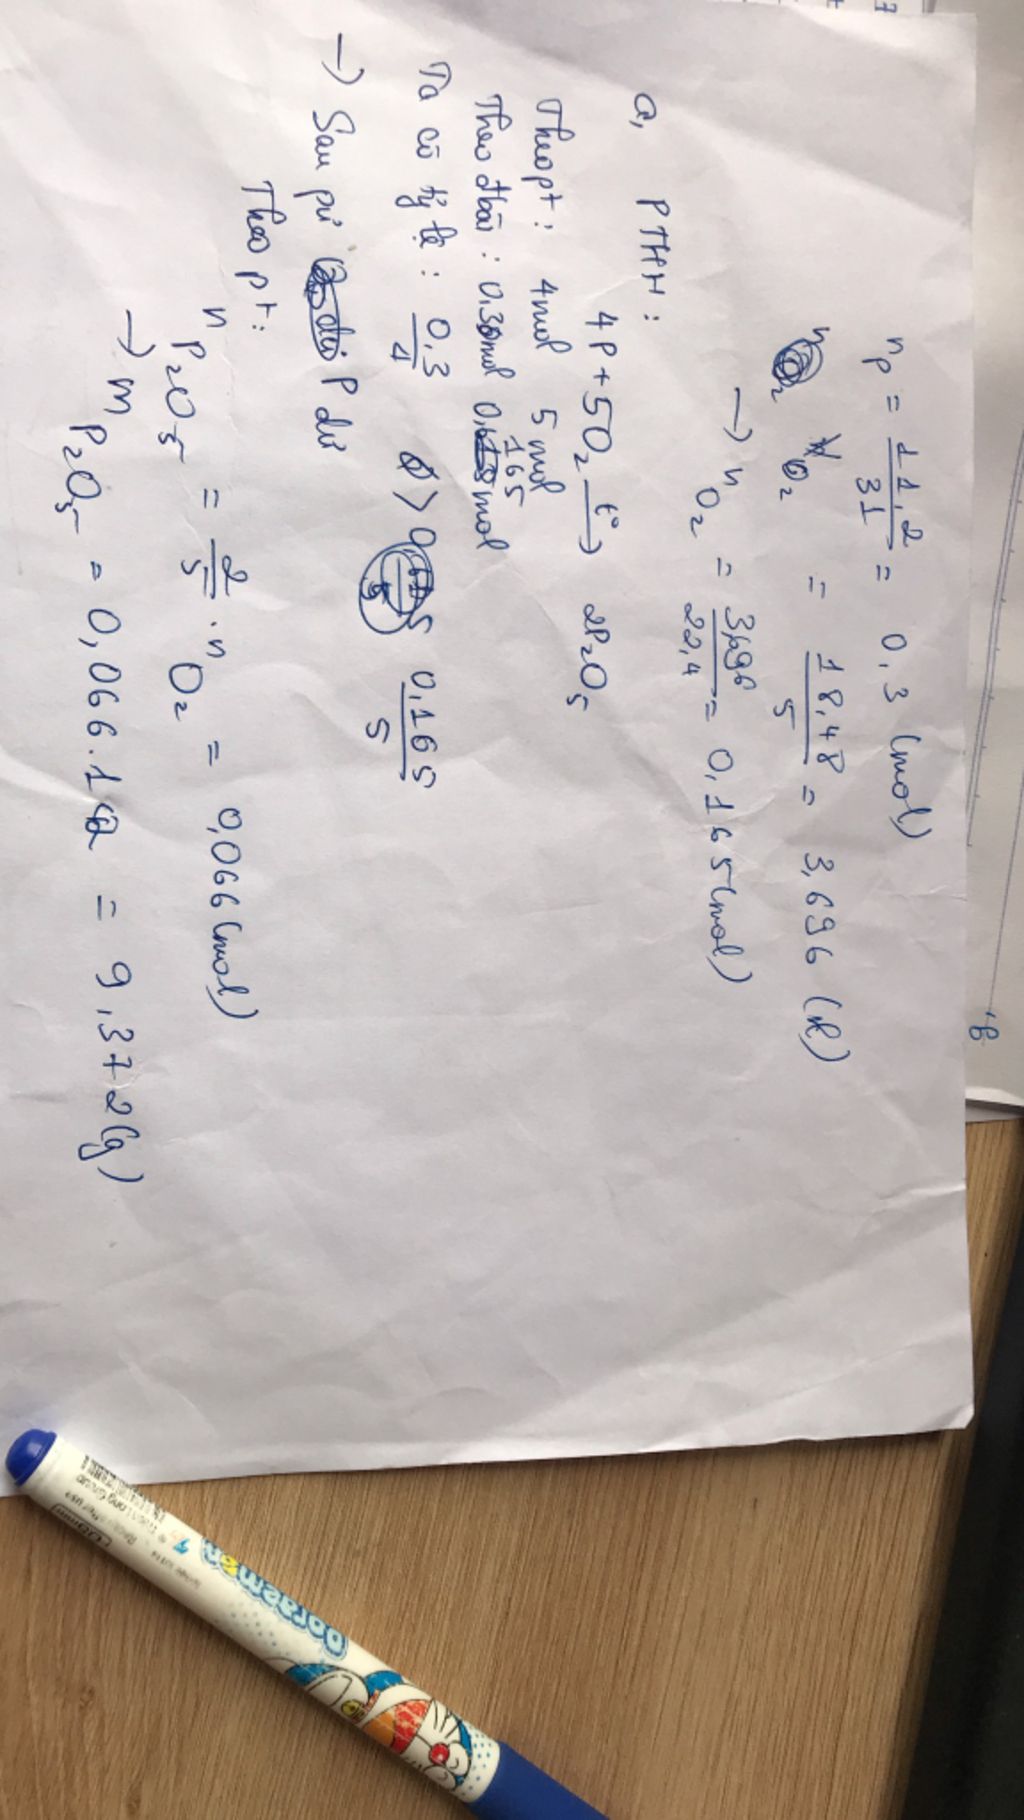 n_P = 11,2/31 = 0,3 (mol)
V_O₂ = 18,48/5 = 3,696 (l)
→ n_O₂ = 3,696/22,4 = 0,165 (mol)
a, PTHH :
4P + 5O₂ –t°→ 2P₂O₅
Theo pt : 4mol 5 mol
Theo đbài : 0,3mol 0,165 mol
Ta có tỷ lệ : 0,3/4 > 0,165/5
→ Sau pứ P dư
Theo pt :
n_P₂O₅ = 2/5 . n_O₂ = 0,066 (mol)
→ m_P₂O₅ = 0,066.142 = 9,372(g)
8,
Doraemon